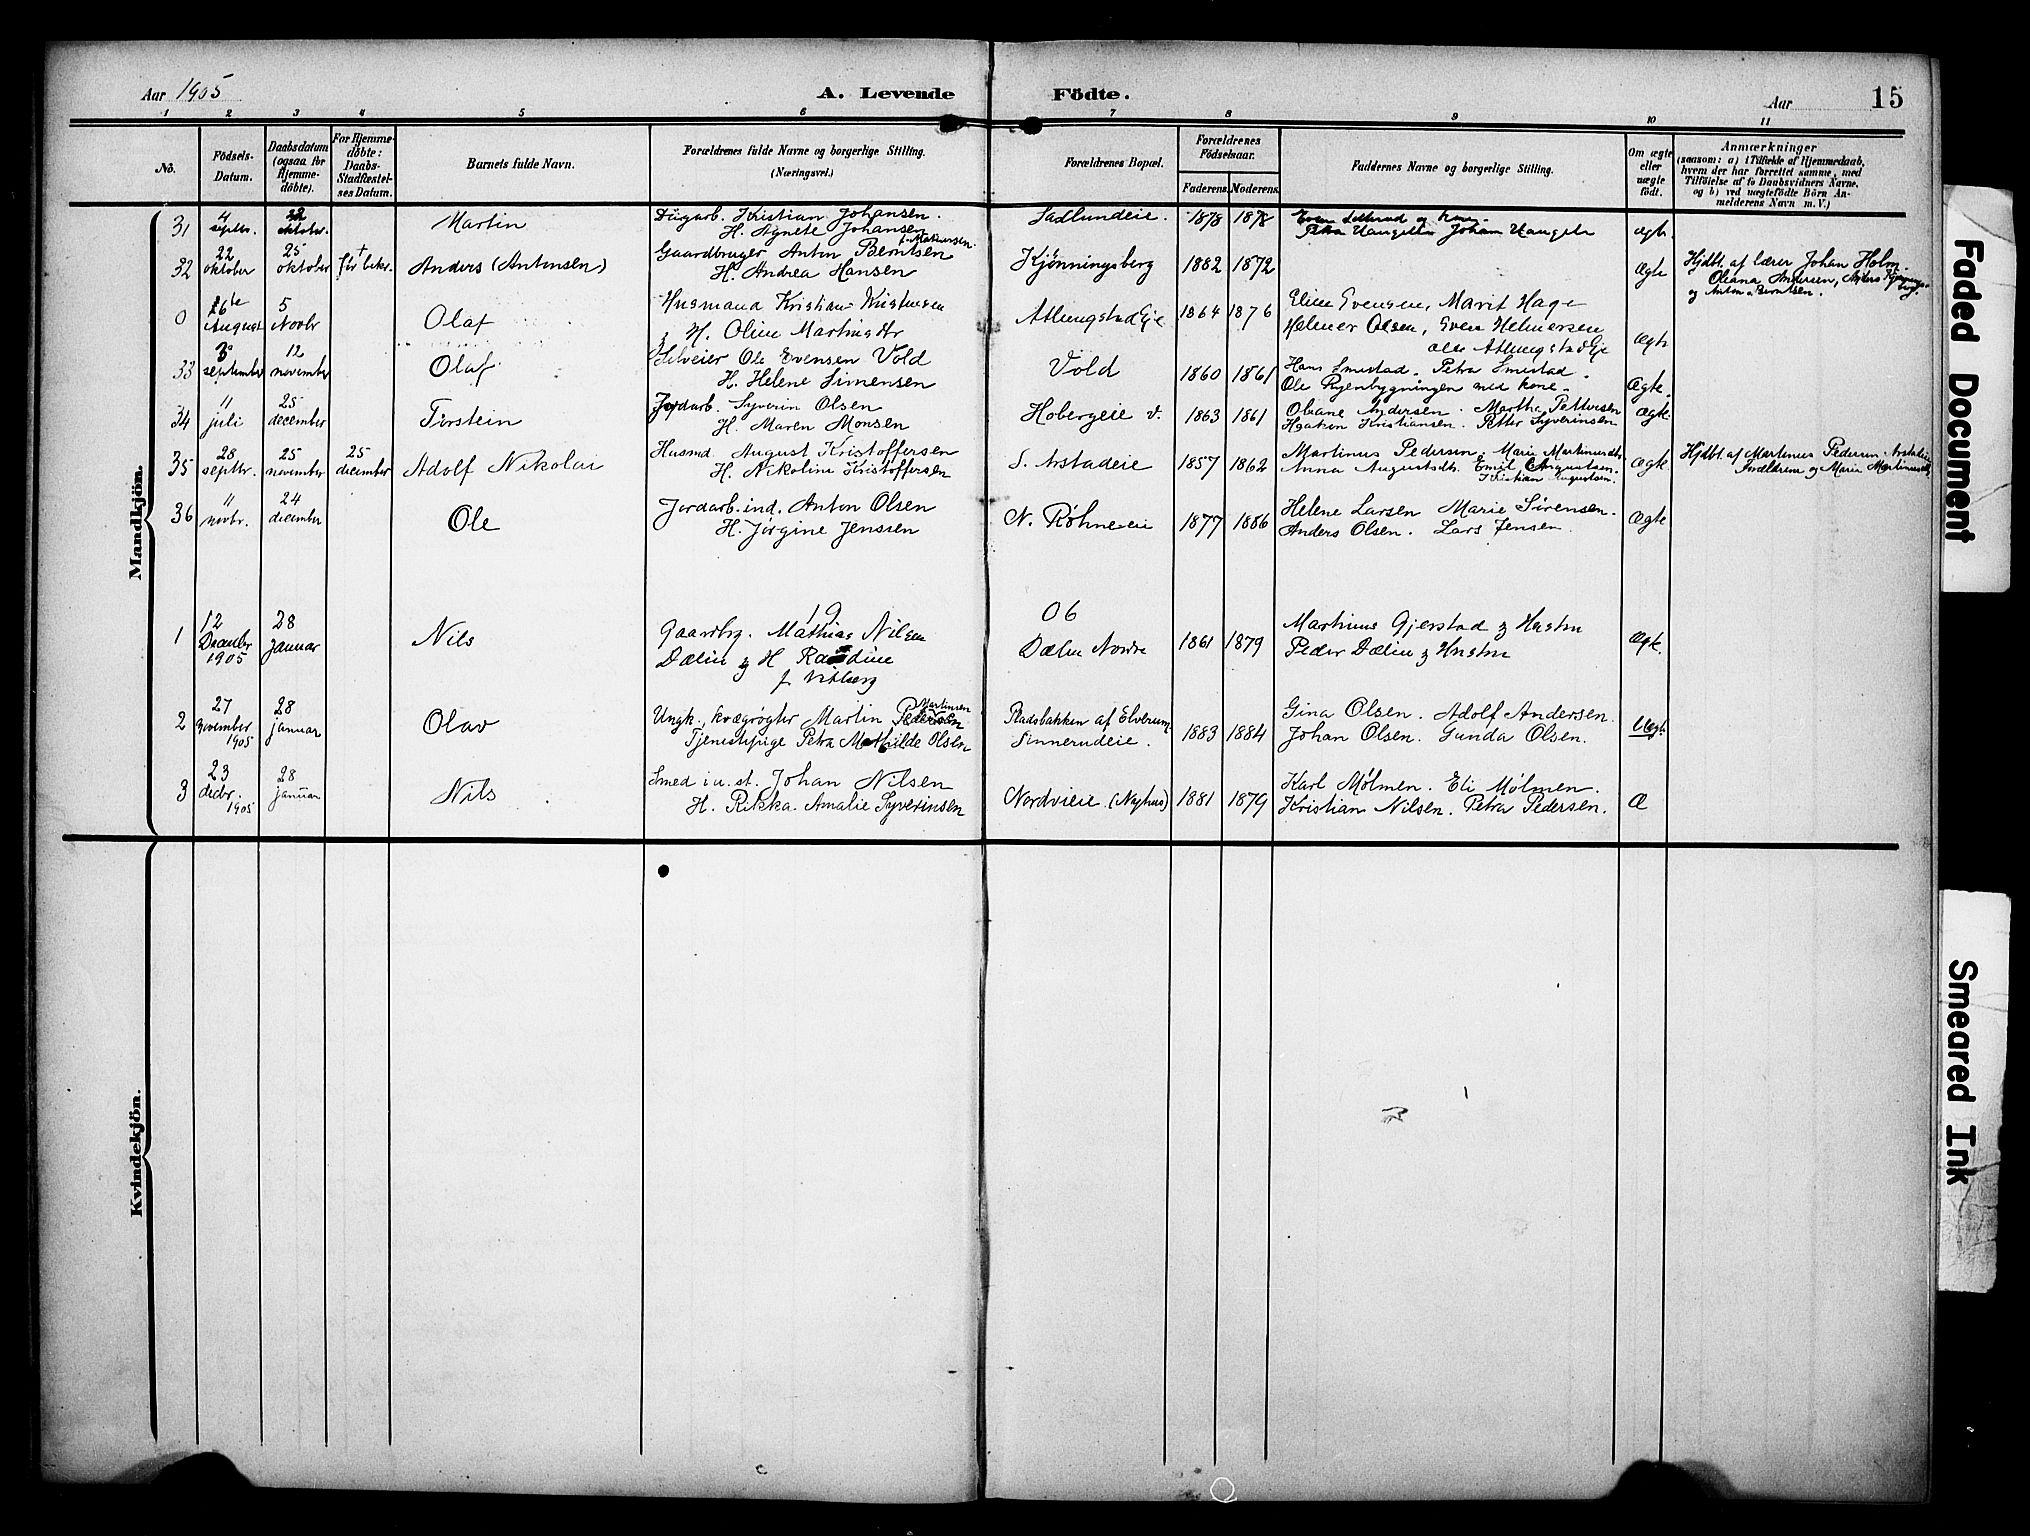 Aar 1905
A. Levende Födte.
Aar
15
1 2 3 4 5 6 7 8 9 10 11
No.
Födsels-
Datum.
Daabsdatum
(ogsaa for
Hjemme-
döbte).
For Hjemme-
döbte:
Daabs-
Stadfæstel-
ses Datum.
Barnets fulde Navn.
Forældrenes fulde Navne og borgerlige Stilling.
(Næringsvei.)
Forældrenes Bopæl.
Forældrenes
Födselsaar.
Faderens. Moderens.
Faddernes Navne og borgerlige Stilling.
Om ægte
eller
uægte
födt.
Anmærkninger
(saasom: a) i Tilfælde af Hjemmedaab,
hvem der har forrettet samme, med
Tilföielse af to Daabsvidners Navne,
og b) ved uegtefödte Börn An-
melderens Navn m. V.)
Mandkjön.
31 4 septbr. oktober. Martin
Dagarb. Kristian Johansen.
H. Agnete Johansen
Sadlundeie. 1878 1878
Even og kone.
Petra Haugeth Johan Haugeth
ægte.
32 22 oktober 25 oktober † før bekr. Anders (Antonsen)
Gaardbruger Anton Berntsen
H. Andrea Hansen
Kjønningsberg 1882 1872 Ægte
Hjdbt. af lærer Johan Holm.
Oleana Andersen, Anders
og Anton Berntsen.
0 16de August 5 Novbr Olaf
Husmand Kristian Kristensen
& H. Oline Martinsdtr
Atlungstad Eje 1864 1876
Eline Evensen, Marit Hage
Helmer Olsen, Even Helmersen
alle Atlungstad Eje
Ægte
33 3 september 12 november Olaf
Selveier Ole Evensen Vold
H. Helene Simensen
Vold 1860 1861
Hans Smestad. Petra Smestad.
Ole Ryenbygningen med kone.
Ægte.
34 11 juli 25 december Torstein
Jordarb. Syverin Olsen
H. Maren Monsen
Hobergeie v. 1863 1861
Oleane Andersen. Martha Pettersen
Haaken Kristiansen. Petter Syverinsen
Ægte
35 28 septbr. 25 november 25 december Adolf Nikolai
Husmd. August Kristoffersen
H. Nikoline Kristoffersen
S. Arstadeie 1857 1862
Martinus Pedersen, Marie Martinusdtr.
Anna Augustsdtr. Emil Augustsen.
Kristian Augustsen.
Ægte
Hjdbt. af Martinus Pedersen Arstadeie
Forældrene og Marie Martinusdtr.
36 11 novbr. 24 december Ole
Jordarb. ind. Anton Olsen
H. Jørgine Jenssen
N. Røhneeie 1877 1886
Helene Larsen Marie Sörensen.
Anders Olsen. Lars Jensen.
Ægte
19 06
1 12 December 1905 28 Januar Nils
Gaardbg. Mathias Nilsen
Dælin & H
f. Vitberg
Dælin Nordre 1861 1879
Martinus Gjerstad & Hustru
Peder Dælin & Hustru
Ægte.
2 27 november 1905 28 januar Olav
Ungk., kvægrøgter Martin Martinsen Pedersen
Tjenestepige Petra Mathilde Olsen
Pladsbakken af Elverum.
Sinnerudeie. 1883 1884
Gina Olsen. Adolf Andersen.
Johan Olsen. Gunda Olsen.
Uægte
3 23 decbr. 1905 28 januar Nils
Smed i u. st. Johan Nilsen
H. Rikka Amalie Syverinsen
Nordvieie (Nyhus) 1881 1879
Karl Mølmen. Eli Mølmen.
Kristian Nilsen. Petra Pedersen.
Æ
Kvindekjön.
Faded Document
Smeared Ink